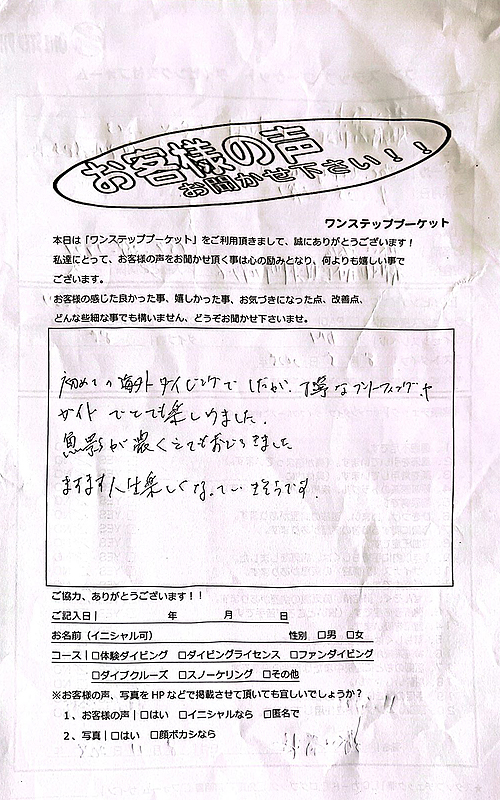 お客様の声
お聞かせ下さい！！
ワンステッププーケット
本日は「ワンステッププーケット」をご利用頂きまして、誠にありがとうございます！
私達にとって、お客様の声をお聞かせ頂く事は心の励みとなり、何よりも嬉しい事で
ございます。
お客様の感じた良かった事、嬉しかった事、お気づきになった点、改善点、
どんな些細な事でも構いません、どうぞお聞かせ下さいませ。
初めての海外ダイビングでしたが、丁寧なブリーフィングや
ガイドでとても楽しめました。
魚影が濃くとてもおどろきました
ますます人生楽しくなっていきそうです。
ご協力、ありがとうございます！！
ご記入日| 年 月 日
お名前（イニシャル可） 性別 □男 □女
コース|□体験ダイビング □ダイビングライセンス □ファンダイビング
□ダイブクルーズ □スノーケリング □その他
※お客様の声、写真をHPなどで掲載させて頂いても宜しいでしょうか？
1、お客様の声|□はい □イニシャルなら □匿名で
2、写真|□はい □顔ボカシなら